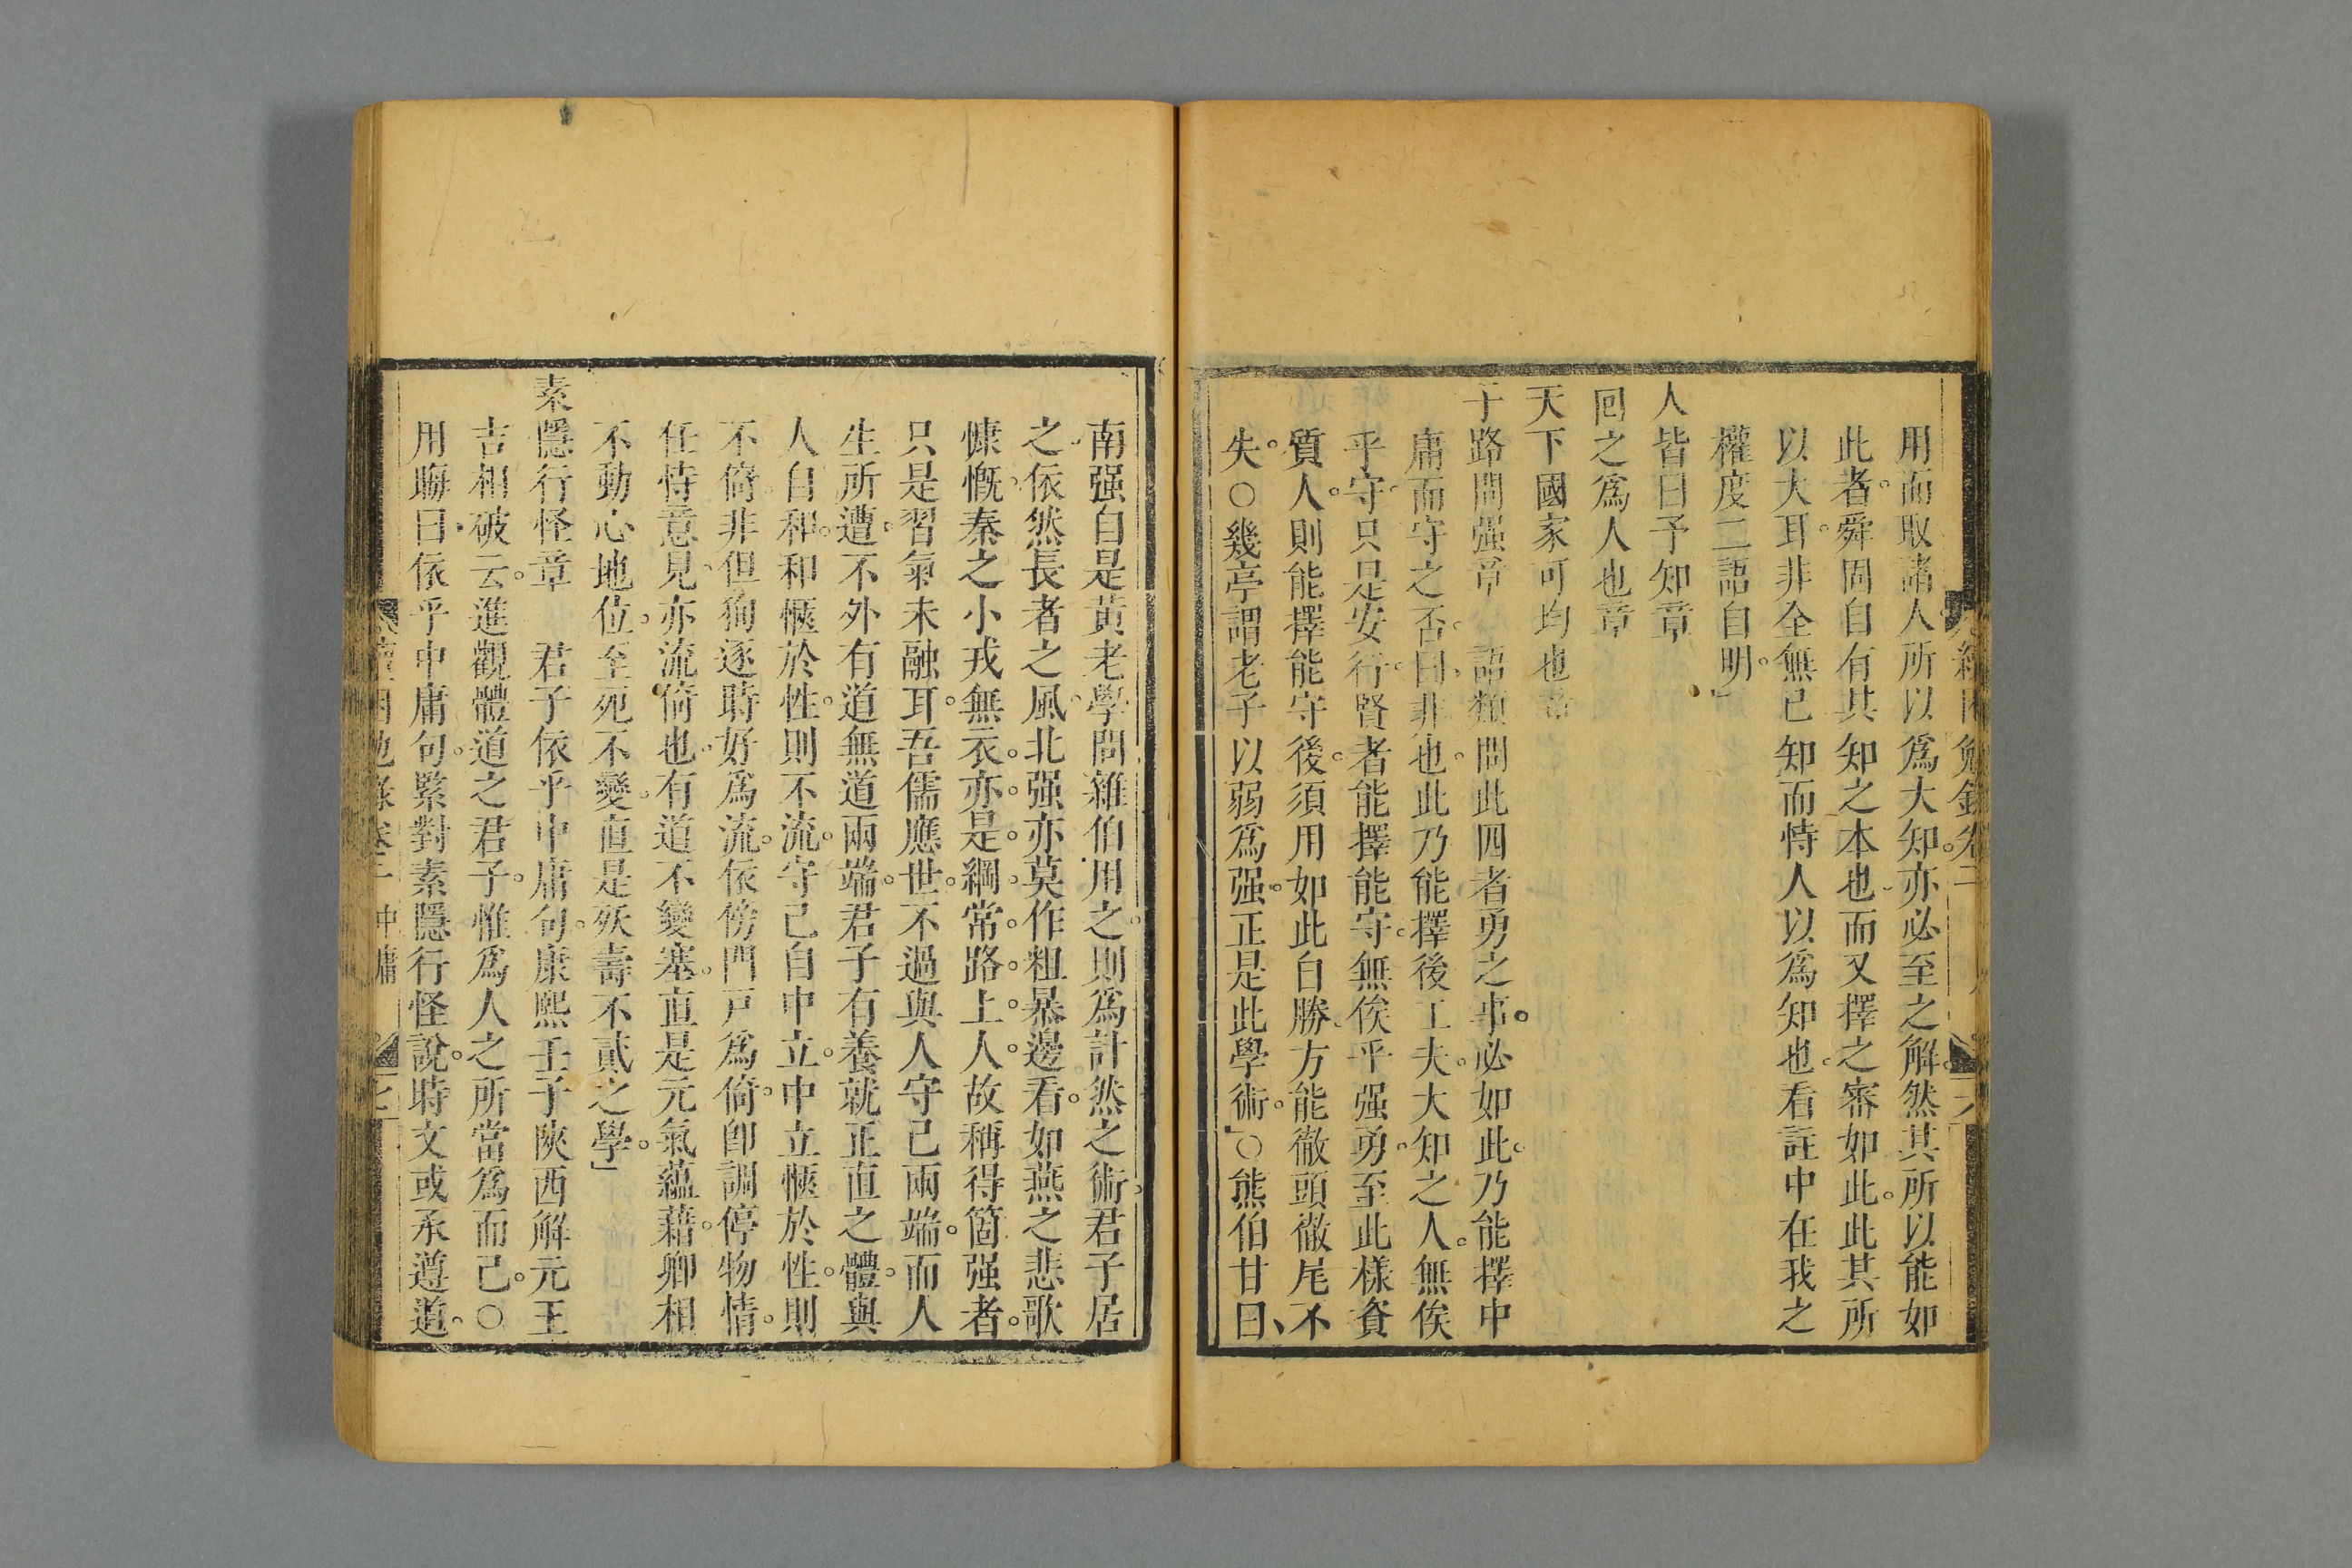 用而取諸人所以爲大知亦必至之解然其所以能如
此者舜固自有其知之本也而又擇之審如此此其所
以大耳非全無已知而恃人以爲知也看註中在我之
權度二語自明
人皆曰予知章
回之爲人也章
天下國家可均也章
子路問强章 語類問此四者勇之事必如此乃能擇中
庸而守之否曰非也此乃能擇後工夫大知之人無俟
乎守只是安行賢者能擇能守無俟乎强勇至此樣資
質人則能擇能守後須用如此自勝方能徹頭徹尾不
失○幾亭謂老子以弱爲强正是此學術○熊伯甘曰
南强自是黃老學問雜伯用之則爲計然之術君子居
之依然長者之風北强亦莫作粗暴邊看如燕之悲歌
慷慨秦之小戎無衣亦是綱常路上人故稱得箇强者
只是習氣未融耳吾儒應世不過與人守已兩端而人
生所遭不外有道無道兩端君子有養就正直之體與
人自和和愜於性則不流守己自中立中立愜於性則
不倚非但狥逐時好爲流依傍門戸爲倚卽調停物情
任恃意見亦流倚也有道不變塞直是元氣蘊藉卿相
不動心地位至死不變直是殀壽不貳之學
素隱行怪章 君子依乎中庸句康熙壬子陝西解元王
吉相破云進觀體道之君子惟爲人之所當爲而已○
用晦曰依乎中庸句緊對素隱行怪說時文或承遵道
卷二 中庸